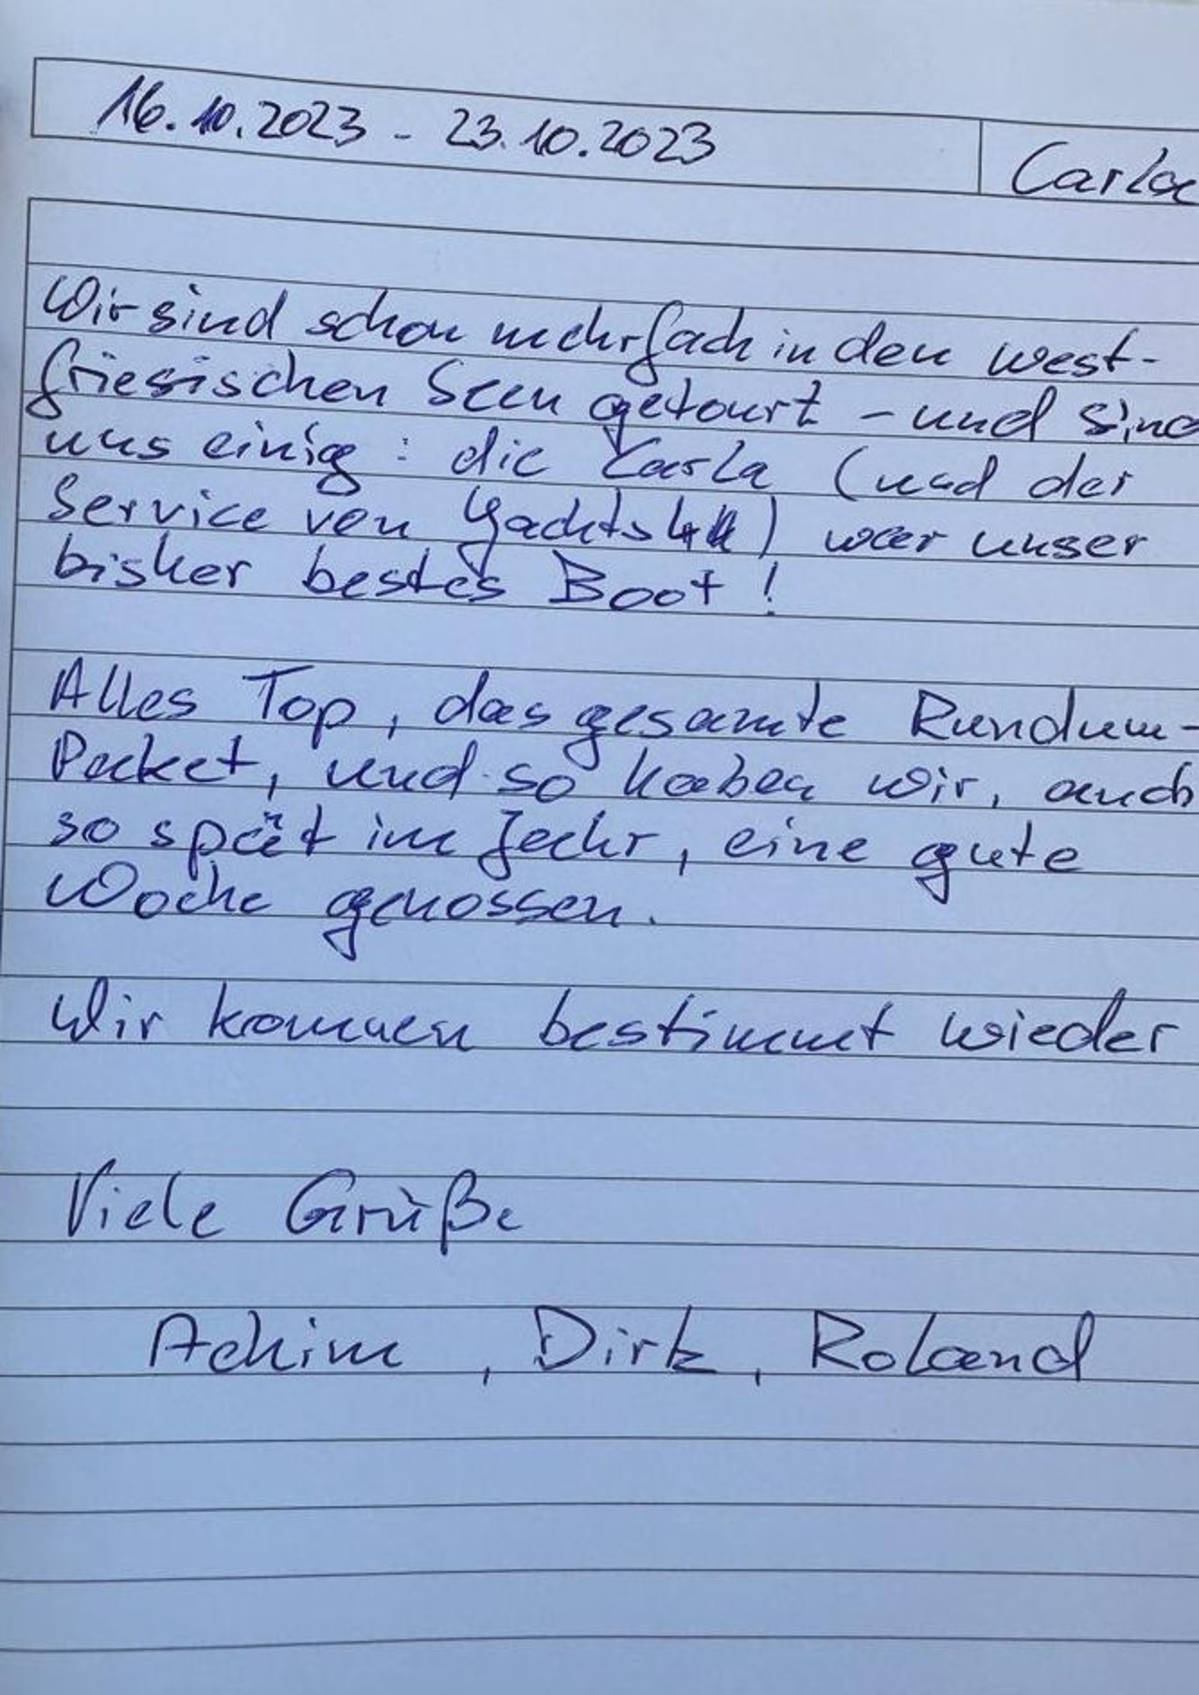 16.10.2023 - 23.10.2023
Carla
Wir sind schon mehrfach in den west-
friesischen Seen getourt - und sind
uns einig : die Carla (und der
Service von Yachts4U) war unser
bisher bestes Boot !
Alles Top, das gesamte Rundum-
Paket, und so haben wir, auch
so spät im Jahr, eine gute
Woche genossen.
Wir kommen bestimmt wieder
Viele Grüße
Achim, Dirk, Roland